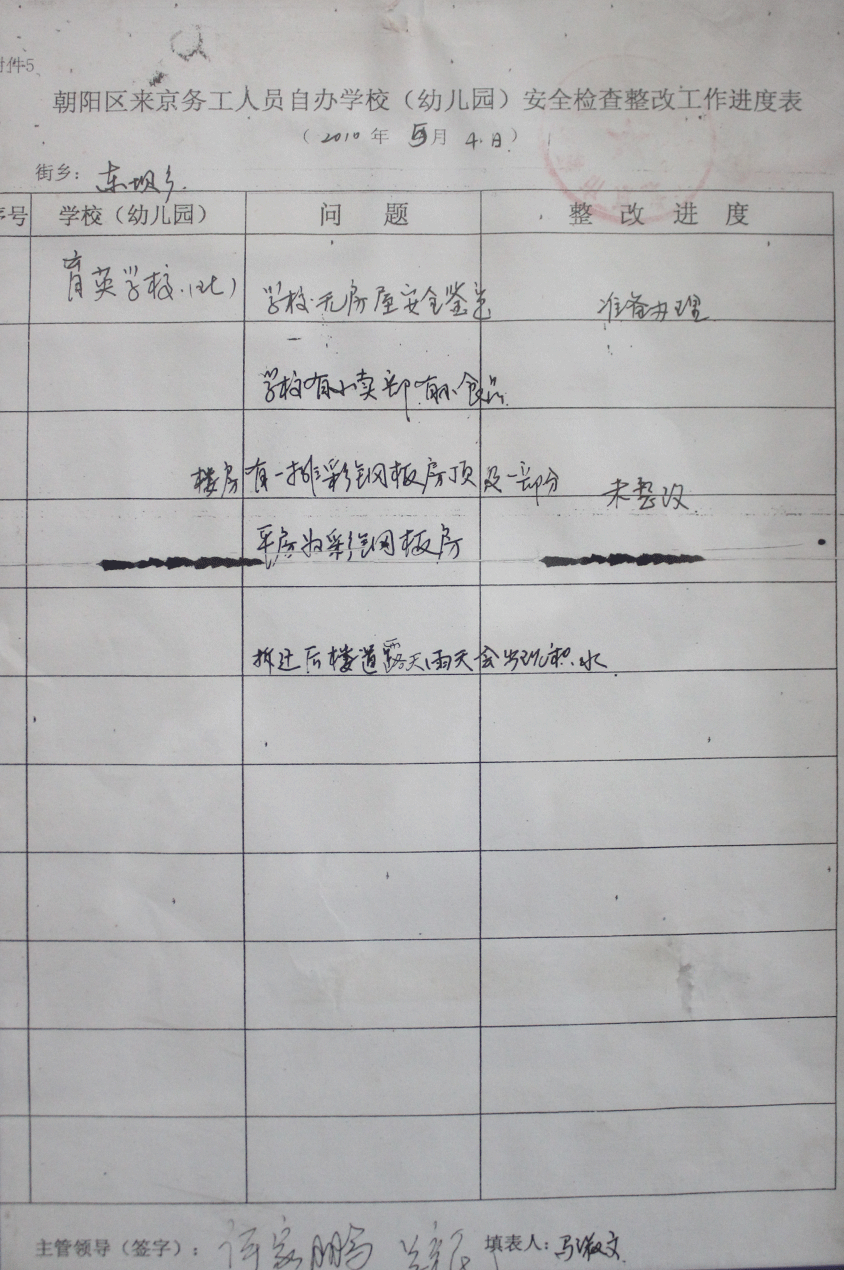 附件5
朝阳区来京务工人员自办学校（幼儿园）安全检查整改工作进度表
（2010年 5月 4.日）
街乡：东坝乡
序号 学校（幼儿园） 问 题 整 改 进 度
育英学校.(北) 学校无房屋安全鉴定 准备办理
学校有小卖部有小食品.
楼房有一排彩钢板房顶及一部分 未整改
平房为彩钢板房
拆迁后楼道露天雨天会出现积水
主管领导（签字）： 填表人：马淑文